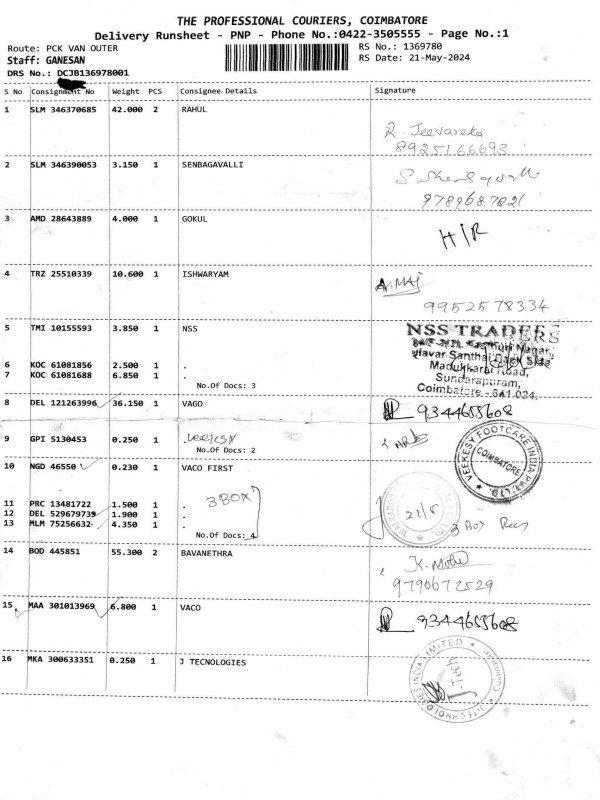 THE PROFESSIONAL COURIERS, COIMBATORE
Delivery Runsheet - PNP - Phone No.:0422-3505555 - Page No.:1
Route: PCK VAN OUTER RS No.: 1369780
Staff: GANESAN RS Date: 21-May-2024
DRS No.: DCJB136978001
S No Consignment No Weight PCS Consignee Details Signature
1 SLM 346370685 42.000 2 RAHUL
R. Jeevareka
8925166693
2 SLM 346390053 3.150 1 SENBAGAVALLI
9789687821
3 AMD 28643889 4.000 1 GOKUL
H/R
4 TRZ 25510339 10.600 1 ISHWARYAM
9952578334
5 TMI 10155593 3.850 1 NSS
NSS TRADERS
Nagar,
Santhai
6 KOC 61081856 2.500 1 .
Madukkarai Road,
7 KOC 61081688 6.850 1 .
Sundarapuram,
No.Of Docs: 3
Coimbatore - 641 024.
8 DEL 121263996 36.150 1 VAGO
9344655608
9 GPI 5130453 0.250 1 .
No.Of Docs: 2
VEEKESY FOOTCARE INDIA PVT. LTD
COIMBATORE
10 NGD 46550 0.230 1 VACO FIRST
11 PRC 13481722 1.500 1 .
3 BOX
12 DEL 529679739 1.900 1 .
21/5
13 MLM 75256632 4.350 1 .
3 Box Rec
No.Of Docs: 4
14 BOD 445851 55.300 2 BAVANETHRA
9790672529
15 MAA 301013969 6.800 1 VACO
9344655608
16 MKA 300633351 0.250 1 J TECNOLOGIES
J-TECHNOLOGIES INDIA LIMITED
J-Tech